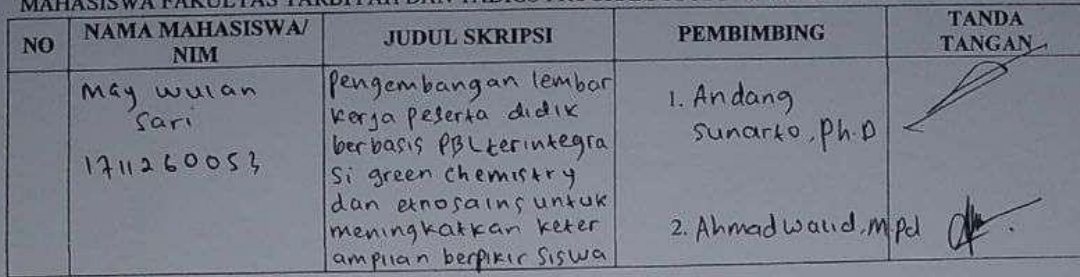 MAHASISWA FAKULTAS TARBIYAH DAN TADRIS
NO
NAMA MAHASISWA/
NIM
JUDUL SKRIPSI
PEMBIMBING
TANDA
TANGAN
May wulan
Sari
1711260053
Pengembangan lembar
kerja peserta didik
berbasis PBL terintegra
si green chemistry
dan etnosains untuk
meningkatkan keter
ampilan berpikir siswa
1. Andang
Sunarto, Ph.D
2. Ahmad Walid, M.Pd